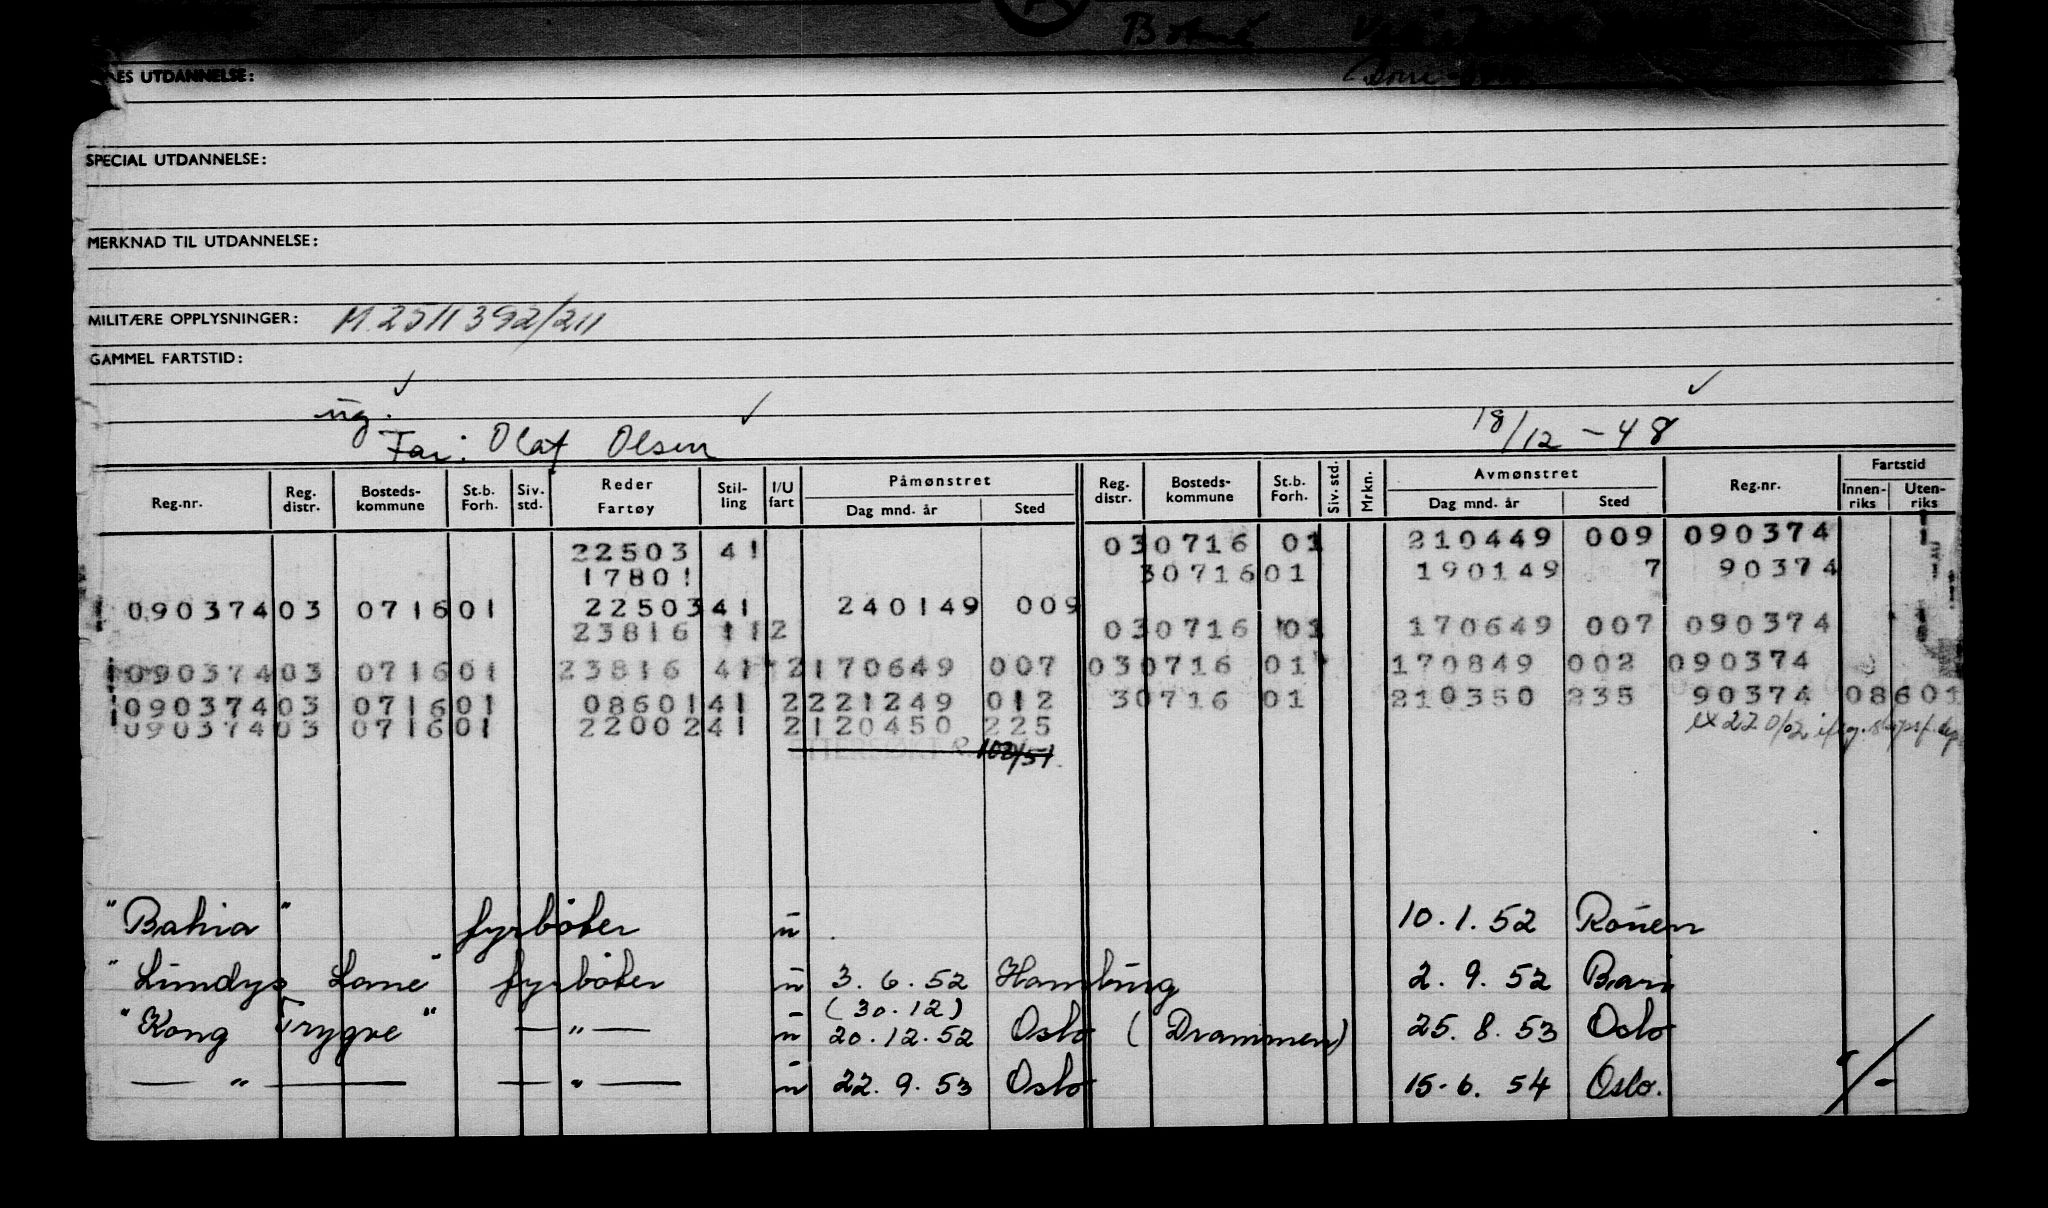 Botne
UTDANNELSE:
SPECIAL UTDANNELSE:
MERKNAD TIL UTDANNELSE:
MILITÆRE OPPLYSNINGER: M.2511392/211
GAMMEL FARTSTID:
ug.
Far: Olaf Olsen 18/12 - 48
Reg.nr. Reg. distr. Bosteds- kommune St.b. Forh. Siv. std. Reder Fartøy Stil- ling I/U fart Påmønstret Dag mnd. år Sted Reg. distr. Bosteds- kommune St.b. Forh. Siv. std. Mrkn. Avmønstret Dag mnd. år Sted Reg.nr. Fartstid Innen- riks Uten- riks
22503 41 030716 01 210449 009 090374
17801 30716 01 190149 7 90374
090374 03 0716 01 22503 41 240149 009
23816 112 030716 01 170649 007 090374
090374 03 0716 01 23816 41 2 170649 007 030716 01 170849 002 090374
090374 03 0716 01 08601 41 2 221249 012 30716 01 210350 235 90374 08601
090374 03 0716 01 22002 41 2 120450 225
102/51.
"Bahia" fyrbøter u 10.1.52 Rouen
"Lundys Lane" fyrbøter u 3.6.52 Hamburg 2.9.52 Bari
(30.12)
"Kong Trygve" — " — u 20.12.52 Oslo (Drammen) 25.8.53 Oslo
— " — — " — u 22.9.53 Oslo 15.6.54 Oslo.